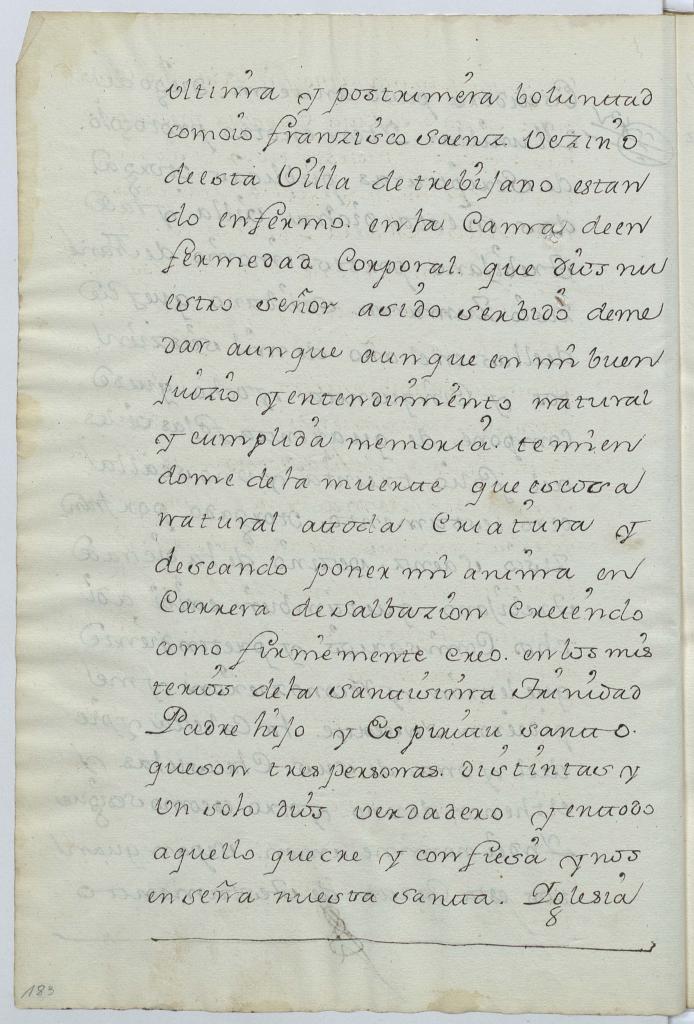 ultima y postrimera bolunttad
como io franzisco saenz. Vezino
de esta Villa de trebijano estan
do enfermo. en la Cama de en
fermedad Corporal. que dios nu
estro señor asido serbido deme
dar aunque aunque en mi buen
Juizio y entendimiento natural
y cumplida memoria. temien
dome de la muertte que es cosa
natural attoda Criatura y
deseando poner mi anima en
Carrera de salbazion Creiendo
como firmemente creo. en los mis
terios de la santtisima Trinidad
Padre hijo y Espirittu santto.
que son tres personas. distintas y
Un solo dios verdadero y enttodo
aquello que cre y confiesa y nos
enseña nuestra santta. Iglesia
8
183